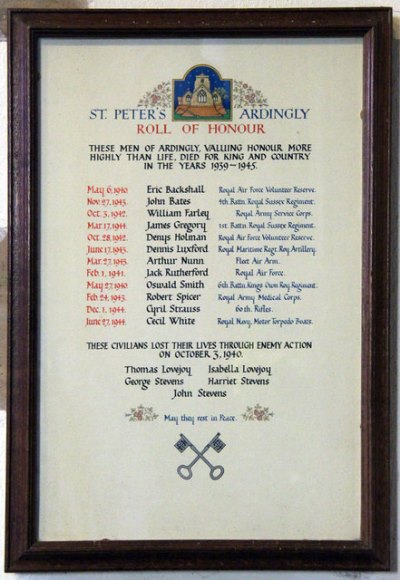 ST. PETER'S ARDINGLY
ROLL OF HONOUR
THESE MEN OF ARDINGLY, VALUING HONOUR MORE
HIGHLY THAN LIFE, DIED FOR KING AND COUNTRY
IN THE YEARS 1939-1945.
May 6, 1940. Eric Backshall Royal Air Force Volunteer Reserve.
Nov. 27, 1943. John Bates 4th. Battn. Royal Sussex Regiment.
Oct. 3, 1942. William Farley Royal Army Service Corps.
Mar. 17, 1944. James Gregory 1st. Battn. Royal Sussex Regiment.
Oct. 28, 1942. Denys Holman Royal Air Force Volunteer Reserve.
June 17, 1943. Dennis Luxford Royal Maritime Regt. Roy. Artillery.
Mar. 27, 1943. Arthur Nunn Fleet Air Arm.
Feb. 1, 1941. Jack Rutherford Royal Air Force.
May 27, 1940. Oswald Smith 6th. Battn. Kings Own Roy. Regiment.
Feb. 24, 1943. Robert Spicer Royal Army Medical Corps.
Dec. 1, 1944. Cyril Strauss 60th. Rifles.
June 27, 1944. Cecil White Royal Navy, Motor Torpedo Boats.
THESE CIVILIANS LOST THEIR LIVES THROUGH ENEMY ACTION
ON OCTOBER 3, 1940.
Thomas Lovejoy Isabella Lovejoy
George Stevens Harriet Stevens
John Stevens
May they rest in Peace.